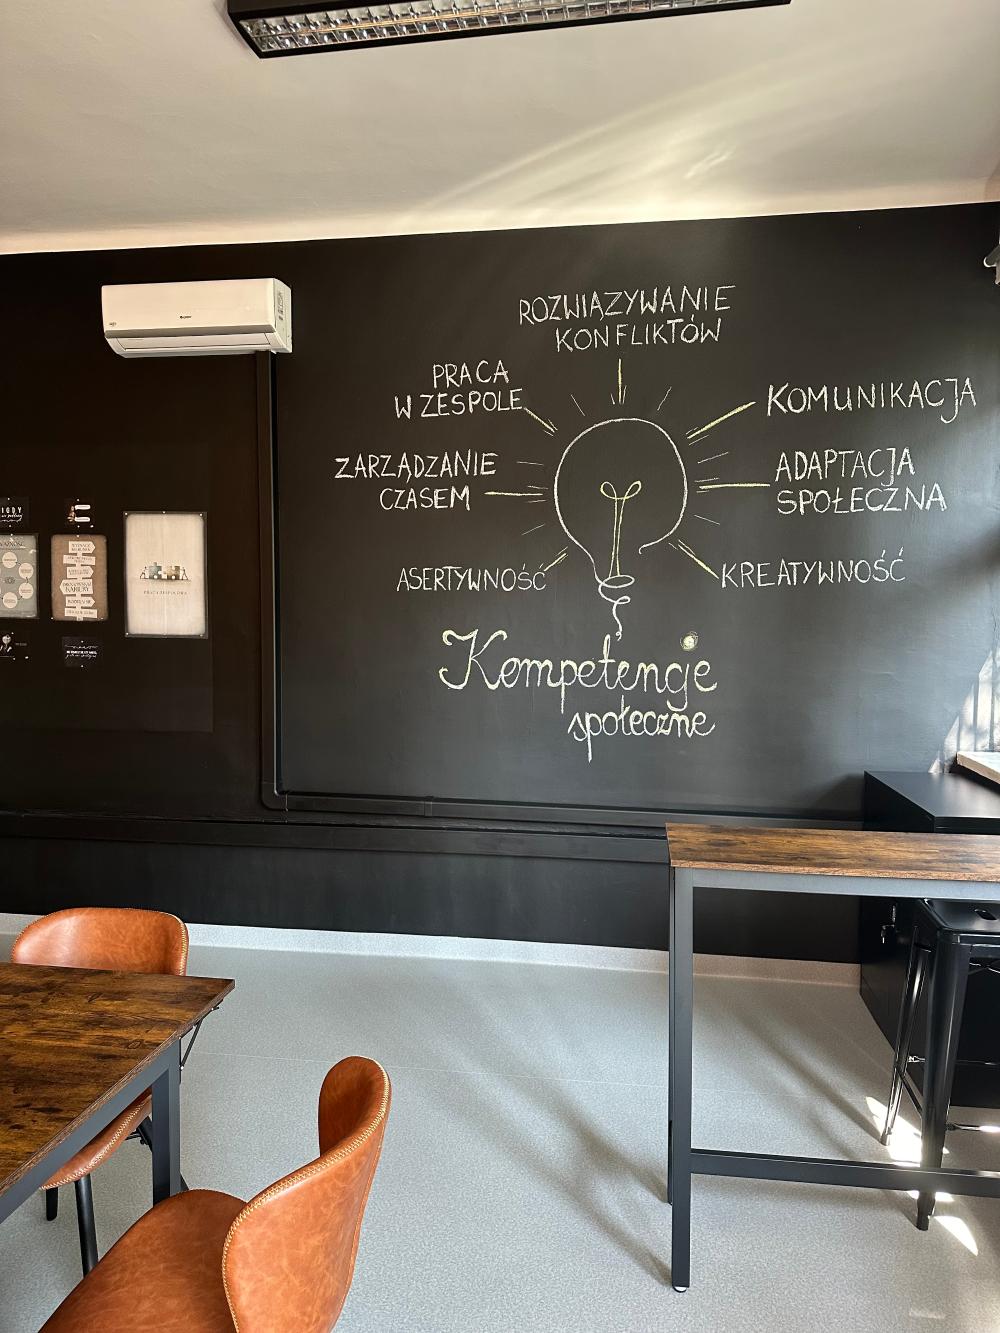 ROZWIĄZYWANIE
KONFLIKTÓW
PRACA
W ZESPOLE
KOMUNIKACJA
ZARZĄDZANIE
CZASEM
ADAPTACJA
SPOŁECZNA
ASERTYWNOŚĆ
KREATYWNOŚĆ
Kompetencje
społeczne
PRACA ZESPOŁOWA